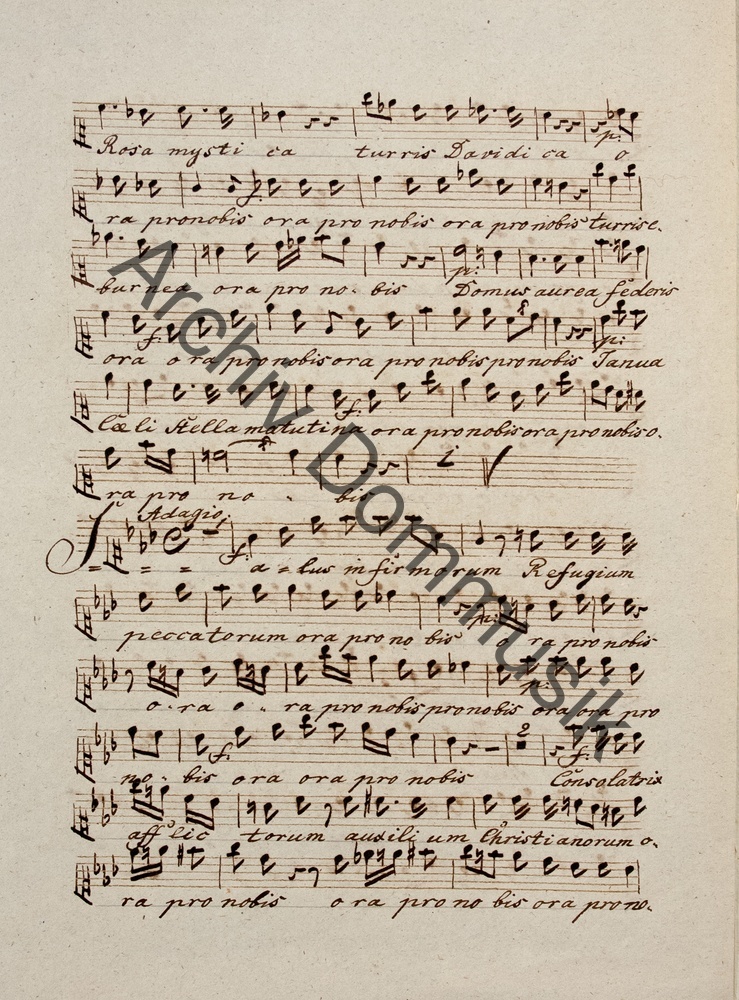 Rosa mysti ca turris Davidi ca o
p:
ra pronobis ora pro nobis ora pro nobis turris e-
f:
burnea ora pro no- bis Domus aurea federis
p:
ora o ra pro nobis ora pro nobis pro nobis Janua
f: f p:
Cœli stella matutina ora pro nobis ora pro nobis o-
f:
ra pro no - bis
Adagio.
S = = = a = lus infirmorum Refugium
f:
peccatorum ora pro no bis o ra pro nobis
p:
o - ra o - ra pro nobis pro nobis ora ora pro
p:
no - bis ora ora pro nobis Consolatrix
f: 2 f:
afflic torum auxili um Christianorum o-
ra pro nobis o ra pro no bis ora pro no-
Archiv Dommusik